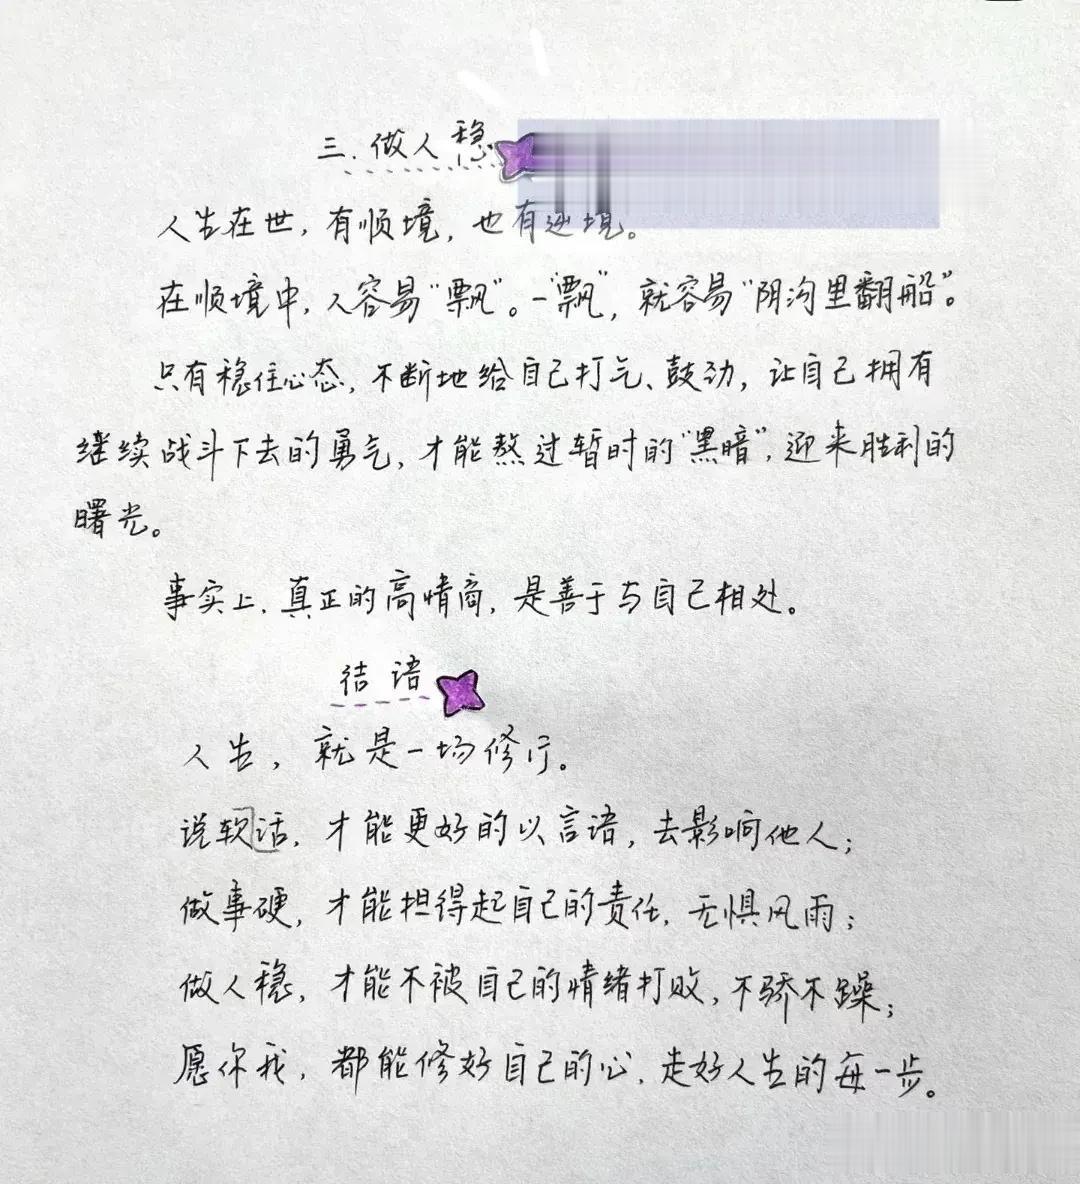 三.做人稳
人生在世,有顺境,也有逆境。
在顺境中,人容易“飘”。一“飘”,就容易“阴沟里翻船”。
只有稳住心态,不断地给自己打气、鼓劲,让自己拥有
继续战斗下去的勇气,才能熬过暂时的“黑暗”,迎来胜利的
曙光。
事实上,真正的高情商,是善于与自己相处。
结语
人生,就是一场修行。
说软话,才能更好的以言语,去影响他人;
做事硬,才能担得起自己的责任,无惧风雨;
做人稳,才能不被自己的情绪打败,不骄不躁;
愿你我,都能修好自己的心,走好人生的每一步。